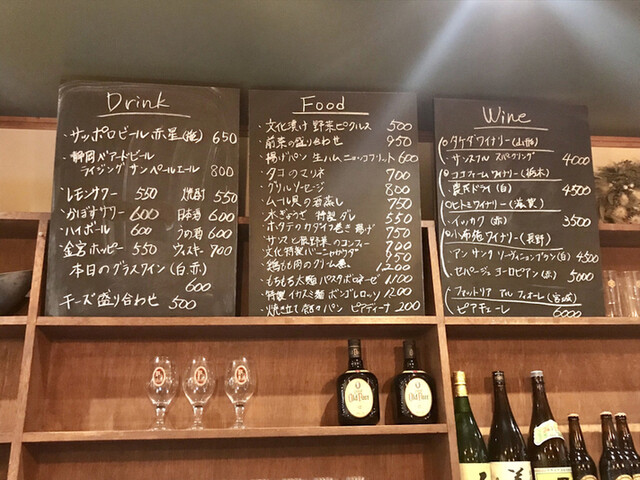 Drink
・サッポロビール赤星(瓶) 650
・静岡ベアードビール
ライジングサンペールエール 800
・レモンサワー 550 焼酎 550
・かぼすサワー 600 日本酒 600
・ハイボール 600 うめ酒 600
・金宮ホッピー 550 ウィスキー 700
本日のグラスワイン(白.赤)
600
チーズ盛り合わせ 500
Food
・文化漬け 野菜ピクルス 500
・前菜の盛り合わせ 950
・揚げパン 生ハム ニョッコフリット 600
・タコのマリネ 700
・グリルソーセージ 800
・ムール貝の酒蒸し 750
・水ぎょうざ 特製ダレ 550
・ホタテのカダイフ巻き揚げ 750
・サンマと長野県のコンフィー 700
・文化特製バーニャカウダ 950
・鶏もも肉のクリーム煮 1,200
・もちもち太麺パスタボロネーゼ 1,100
・特製イカスミ麺 ボンゴレロッソ 1,200
・焼き立て パン ピアディーナ 200
Wine
○タケダワイナリー(山形)
・サンスフル スパークリング 4000
○ココファームワイナリー(栃木)
・農民ドライ(白) 4500
○ヒトミワイナリー(滋賀)
・イッカク(赤) 3500
○小布施ワイナリー(長野)
・アンサンクソーヴィニョンブラン(白) 4500
・セパージュヨーロピアン(赤) 5000
・ファットリア アル フィオーレ(宮城)
・ピアチューレ 6000
Old Parr
Old Parr